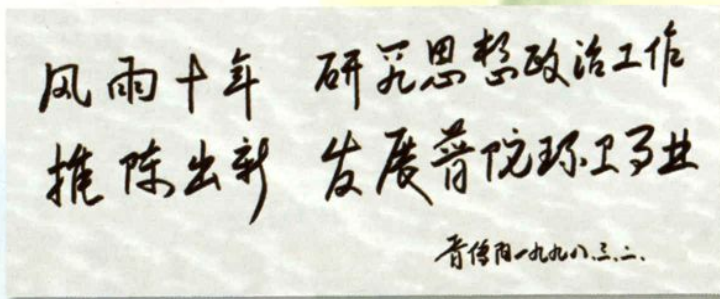 风雨十年 研究思想政治工作
推陈出新 发展普陀环卫事业
一九九八.三.二.